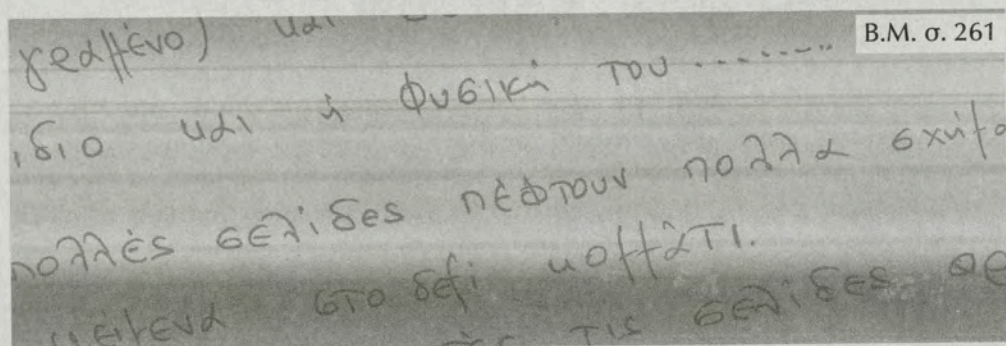 Β.Μ. σ. 261
γραμμένο) και
ίδιο και ή φυσική του ..........
πολλές σελίδες πέφτουν πολλά σχήμα
κείμενα στο δεξί κομμάτι.
τις σελίδες θε